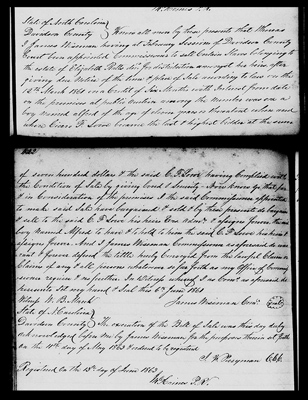 State of North Carolina
Davidson County Know all men by these presents that Whereas
I James Wiseman having at February Session of Davidson County
Court been appointed Commissioner to sell Certain Slaves belonging to
the estate of Elizabeth Potts dec for distribution amongst her heirs after
giving due Notice of the time & place of Sale according to law on the
12th March 1860 on a Credit of Six Months with Interest from date
on the premises at public auction among the number was one
boy named Alfred of the age of eleven years
when C. F. Lowe became the last & highest bidder at the sum
of seven hundred dollars & the said C. F. Lowe having Complied with
the Condition of Sale by giving bond & Security Now know ye that for
& in Consideration of the premises I the said Commissioner appointed
to make said Sale have bargained & sold & by these presents do bargain
& sell to the said C. F. Lowe his heirs & assigns forever the
boy named Alfred to have & to hold to him the said C. F. Lowe his heirs &
assigns forever And I James Wiseman Commissioner as aforesaid do war-
rant & forever defend the title hereby Conveyed from the lawful Claim or
Claims of any & all persons whatsoever so far forth as my Office of Commis-
sioner requires & no further In Witness whereof I as Comr as aforesaid do
presents Set my hand & Seal this 6th June 1861
Witness W. B. Meack James Wiseman Comr
State of N. Carolina
Davidson County The execution of the Bill of Sale was this day duly
acknowledged before me by James Wiseman for the purposes therein set forth
on the 11th day of May 1863 ordered to be registered
Registered on the 15th day of June 1863